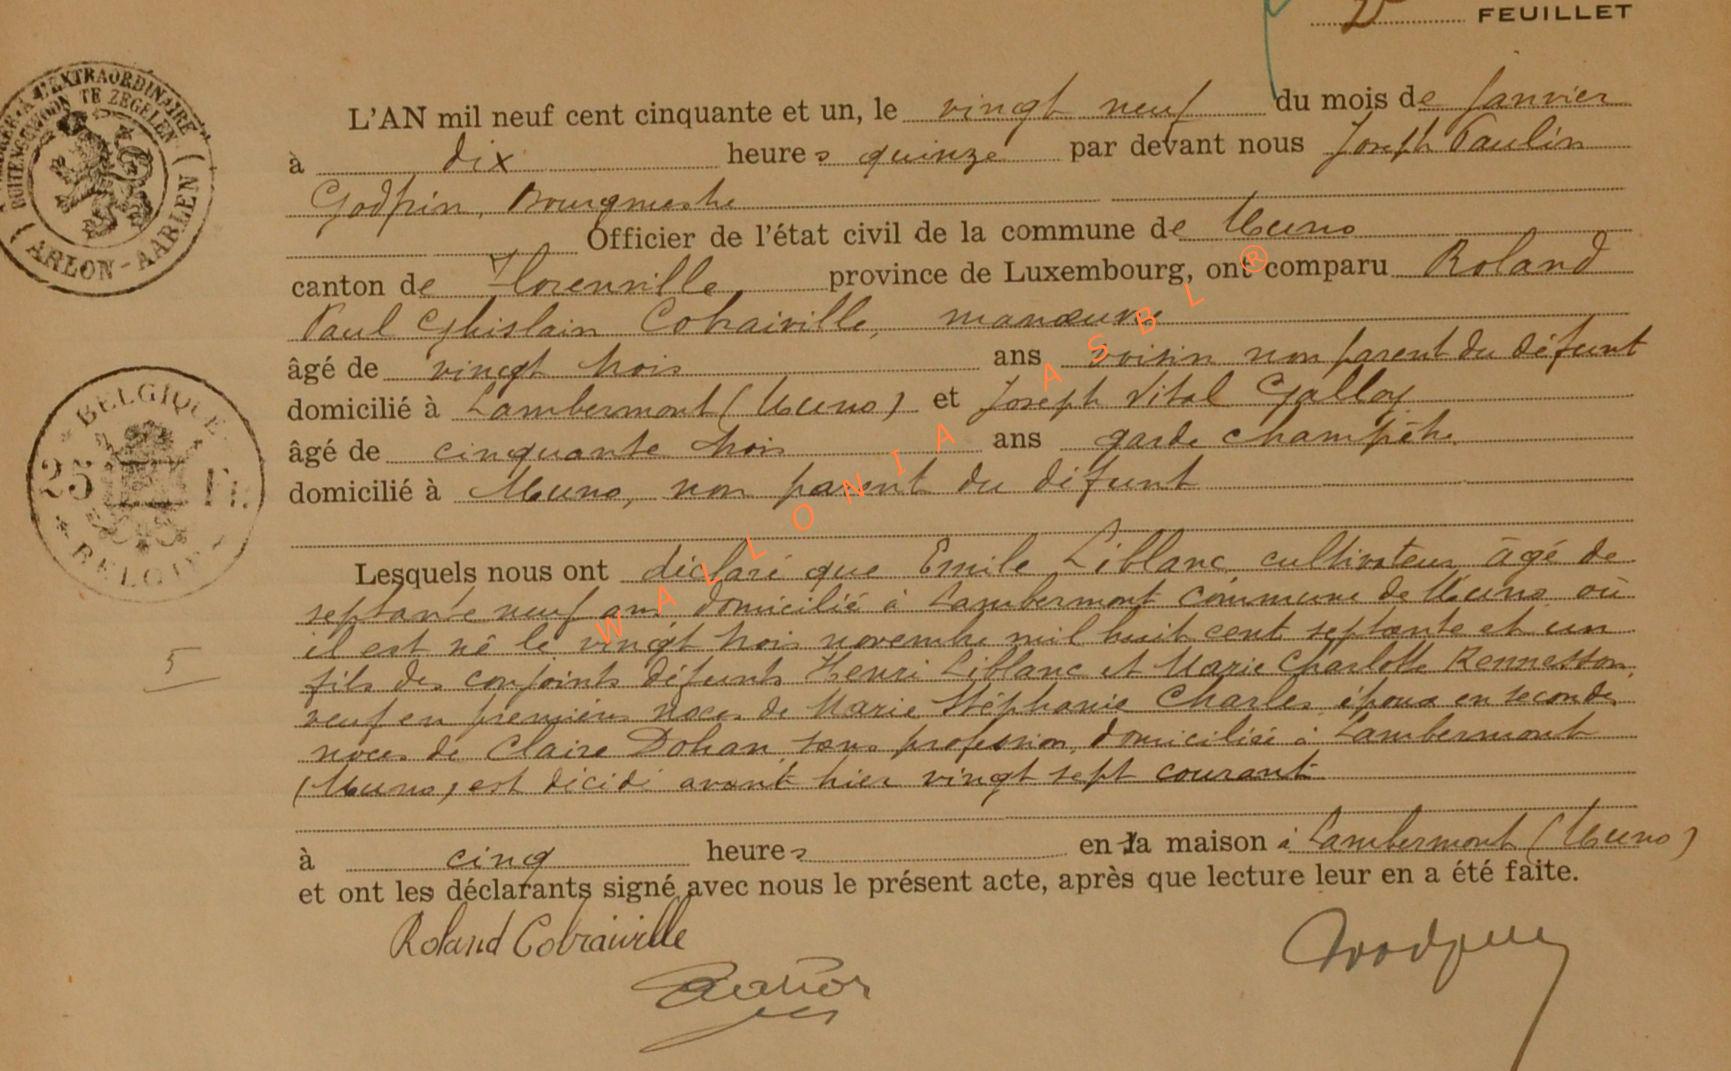 2 FEUILLET
L'AN mil neuf cent cinquante et un, le vingt neuf du mois de Janvier
à dix heures quinze par devant nous Joseph Paulin
Godfrin, Bourgmestre
Officier de l'état civil de la commune de Muno
canton de Florenville province de Luxembourg, ont comparu Roland
Paul Ghislain Cobraiville, manœuvre
âgé de vingt trois ans voisin non parent du défunt
domicilié à Lambermont (Muno) et Joseph Vital Galloy
âgé de cinquante trois ans garde champêtre
domicilié à Muno, non parent du défunt
Lesquels nous ont déclaré que Emile Liblanc, cultivateur, âgé de
septante neuf ans domicilié à Lambermont commune de Muno où
il est né le vingt trois novembre mil huit cent septante et un
fils des conjoints défunts Henri Liblanc et Marie Charlotte Rennesson,
veuf en premières noces de Marie Stéphanie Charles, époux en secondes
noces de Claire Dohan, sans profession, domiciliée à Lambermont
(Muno) est décédé avant hier vingt sept courant
à cinq heures en la maison à Lambermont (Muno)
et ont les déclarants signé avec nous le présent acte, après que lecture leur en a été faite.
Roland Cobraiville
BUITENGEWOON TE ZEGELEN
ARLON-AARLEN
BELGIQUE
25 Fr.
BELGIE
5
WALLONIA ASBL ®